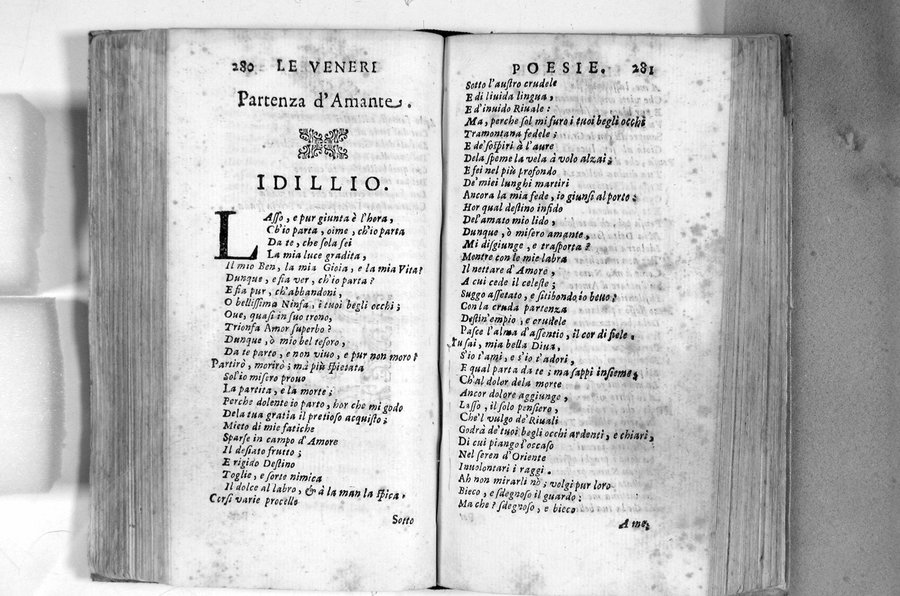 280 LE VENERI
Partenza d'Amante.
IDILLIO.
LAsso, e pur giunta è l'hora,
Ch'io parta, oime, ch'io parta
Da te, che sola sei
La mia luce gradita,
Il mio Ben, la mia Gioia, e la mia Vita?
Dunque, e fia ver, ch'io parta?
E fia pur, ch'abbandoni,
O bellissima Ninfa, i tuoi begli occhi;
Oue, quasi in suo trono,
Trionfa Amor superbo?
Dunque, ò mio bel tesoro,
Da te parto, e non viuo, e pur non moro?
Partirò, morirò; mà più spietata
Sol'io misero prouo
La partita, e la morte;
Perche dolente io parto, hor che mi godo
Dela tua gratia il pretioso acquisto;
Mieto di mie fatiche
Sparse in campo d'Amore
Il desiato frutto;
E rigido Destino
Toglie, e sorte nimica
Il dolce al labro, & à la man la spica.
Corsi varie procelle
Sotto
POESIE. 281
Sotto l'austro crudele
E di liuida lingua,
E d'inuido Riuale:
Ma, perche sol mi furo i tuoi begli occhi
Tramontana fedele;
E de' sospiri à l'aure
Dela speme la vela à volo alzai;
E fei nel più profondo
De' miei lunghi martiri
Ancora la mia fede, io giunsi al porto;
Hor qual destino infido
Del'amato mio lido,
Dunque, ò misero amante,
Mi disgiunge, e trasporta?
Mentre con le mie labra
Il nettare d'Amore,
A cui cede il celeste;
Suggo assetato, e sitibondo io beuo?
Con la cruda partenza
Destin'empio, e crudele
Pasce l'alma d'assentio, il cor di fiele.
Tu sai, mia bella Diua,
S'io t'ami, e s'io t'adori,
E qual parta da te; ma sappi insieme,
Ch'al dolor dela morte
Ancor dolore aggiunge,
Lasso, il solo pensiero,
Che'l vulgo de' Riuali
Godrà de' tuoi begli occhi ardenti, e chiari,
Di cui piango l'occaso
Nel seren d'Oriente
Inuolontari i raggi.
Ah non mirarli nò; volgi pur loro
Bieco, e sdegnoso il guardo;
Ma che? sdegnoso, e bieco
Ame,